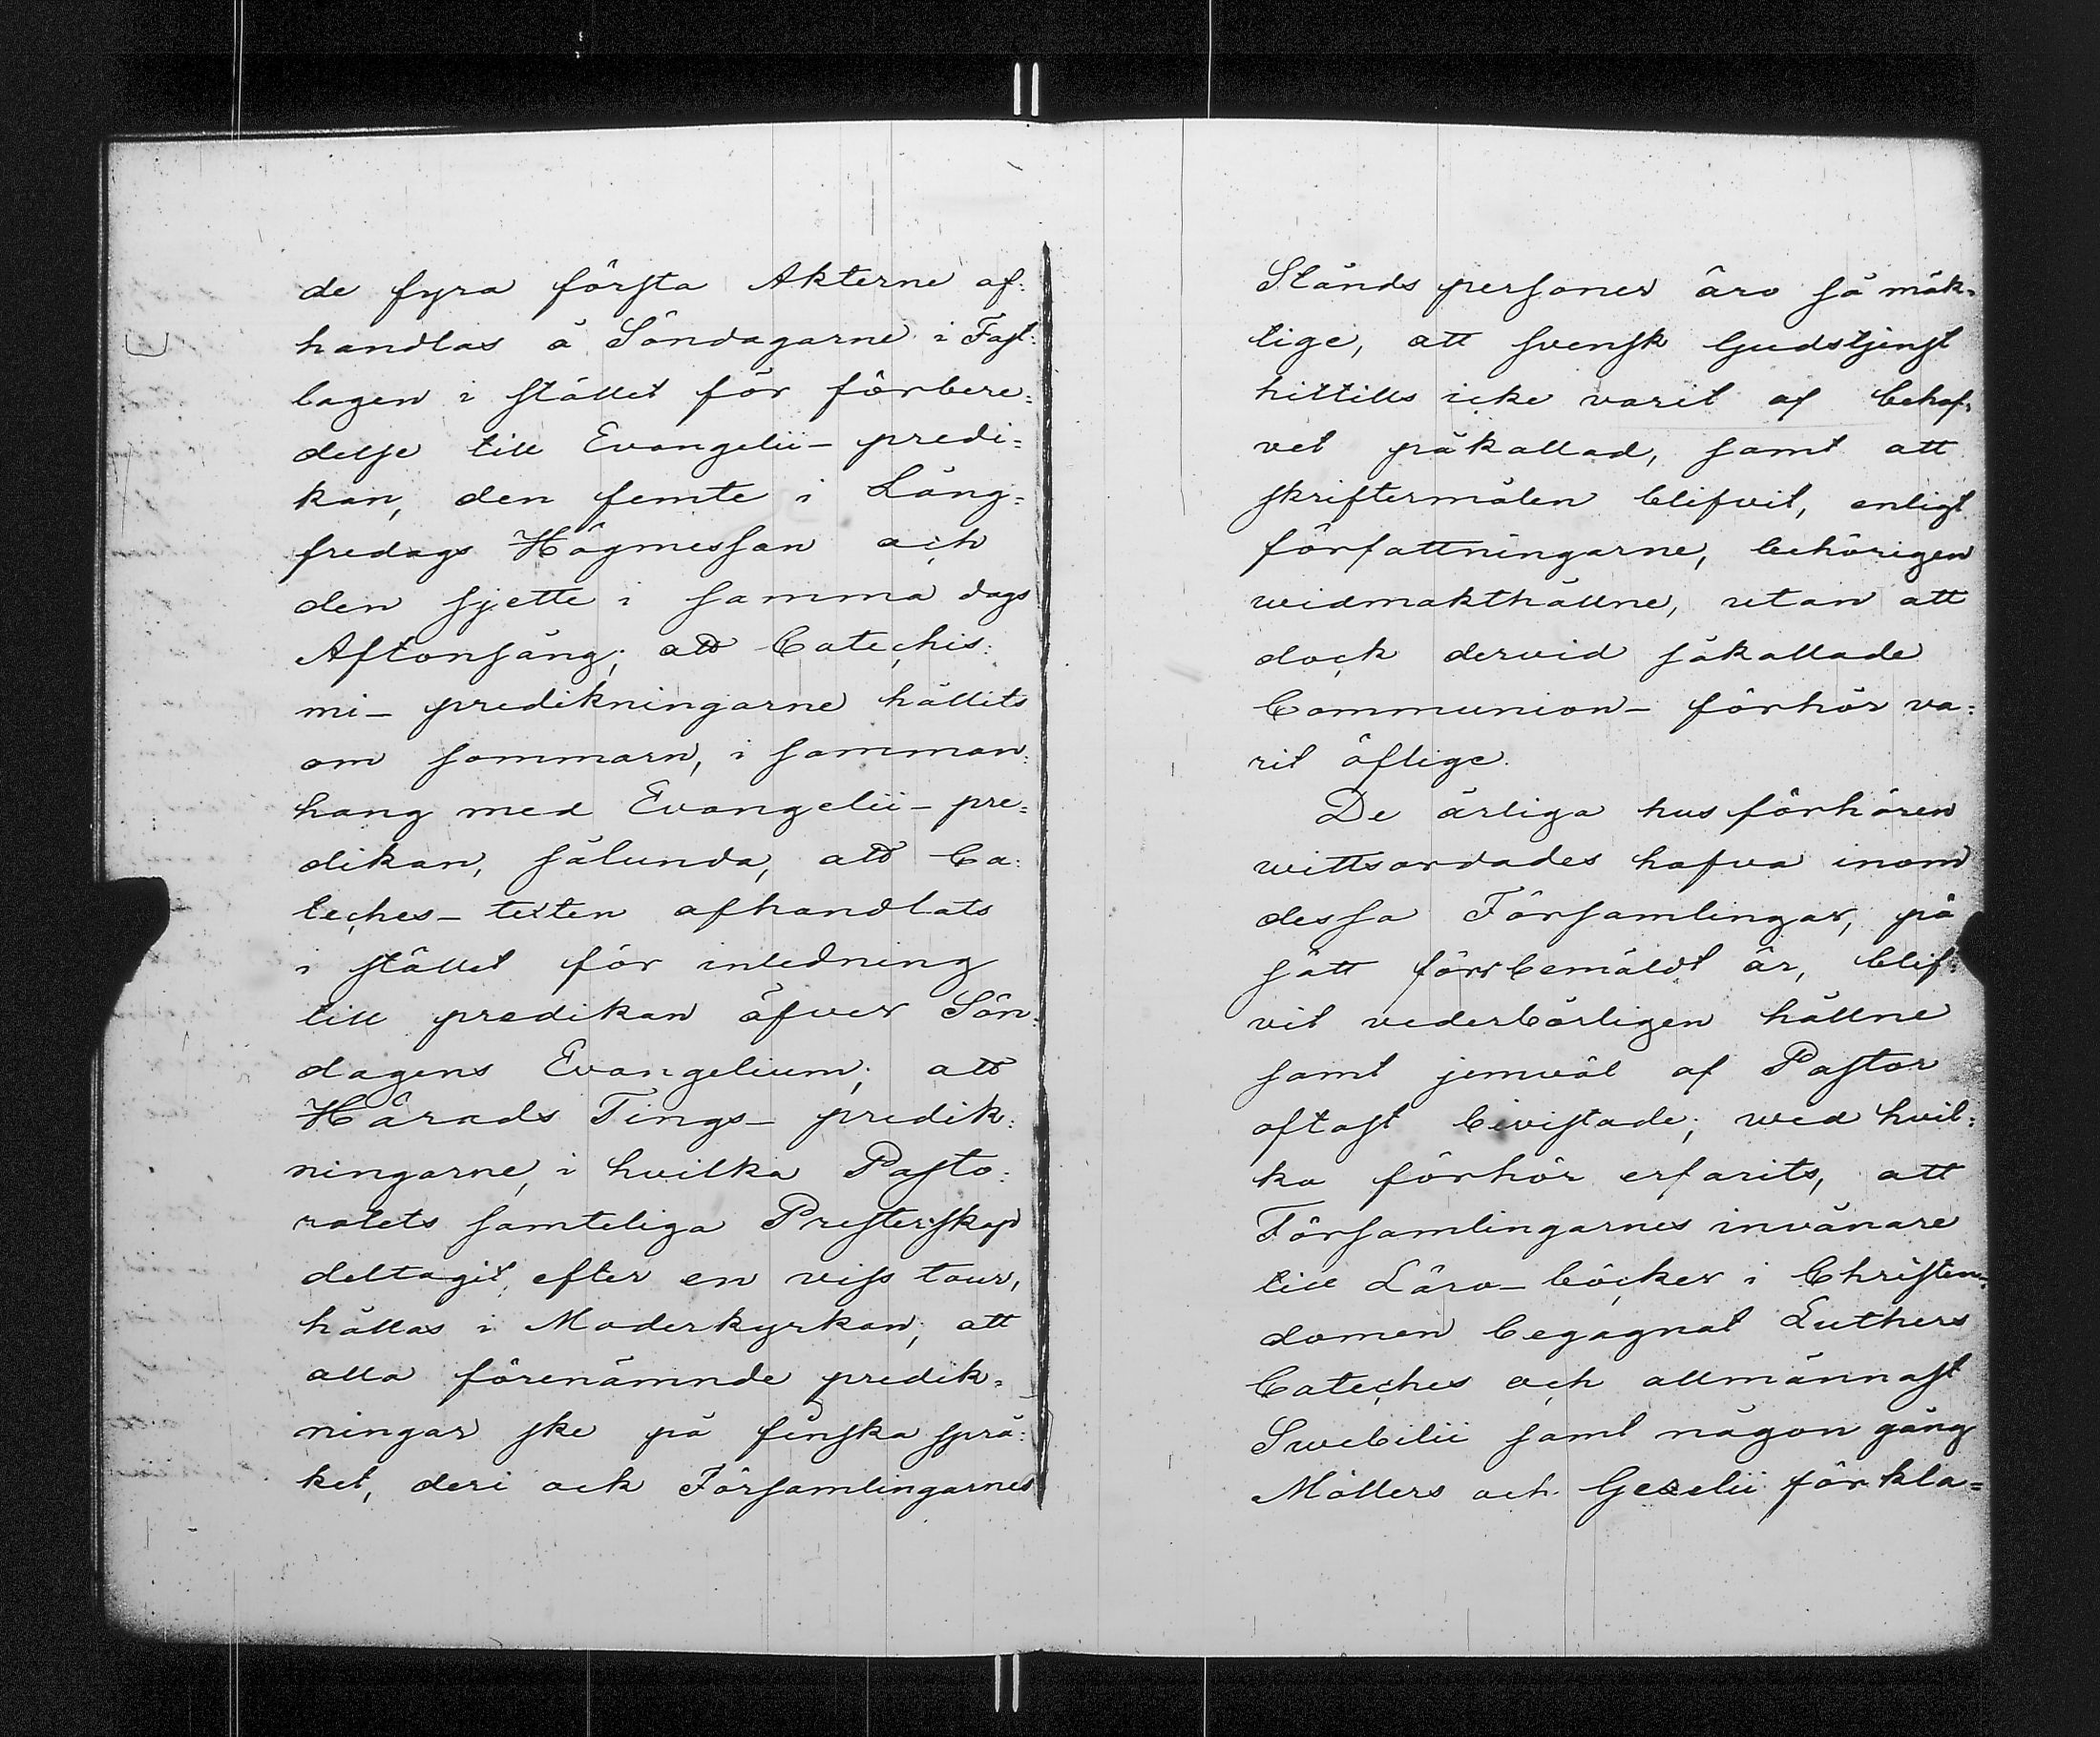 de fyra första Akterne af:
handlas å Söndagarne i Fast:
lagen i stället för förbere:
delse till Evangelii- predi:
kan, den femte i Lång:
fredags Högmessan och
den sjette i samma dags
Aftonsång; att Cateches:
mi- predikningarne hållits
om sommarn, i samman:
hang med Evangelii- pre:
dikan, sålunda, att Ca:
teches- texten afhandlats
i stället för inledning
till predikan öfver Sön:
dagens Evangelium; att
Härads Tings- predik:
ningarne, i hvilka Pasto:
ratets samteliga Presterskap
deltagit, efter en viss tour,
hållas i Moderkyrkan, att
alla förenämnde predik:
ningar ske på finska språ:
ket, deri ock Församlingarnes
Stånds personer äro så mäk:
tige, att svensk Gudstjenst
hittills icke varit af behof:
vet påkallad, samt att
skriftermålen blifvit, enligt
författningarne, behörigen
widmakthållne, utan att
dock dervid såkallade
Communion- förhör va:
rit öflige.
De årliga husförhören
wittsordades hafva inom
dessa Församlingar, på
sätt förrbemäldt är, blif:
vit vederbörligen hållne
samt jemväl af Pastor
oftast bivistade; wed hvil:
ka förhör erfarits, att
Församlingarnes invånare
till Läro- böcker i Christen:
domen begagnat Luthers
Cateches och allmännast
Swebilii samt någon gång
Möllers och Gezelii förkla=